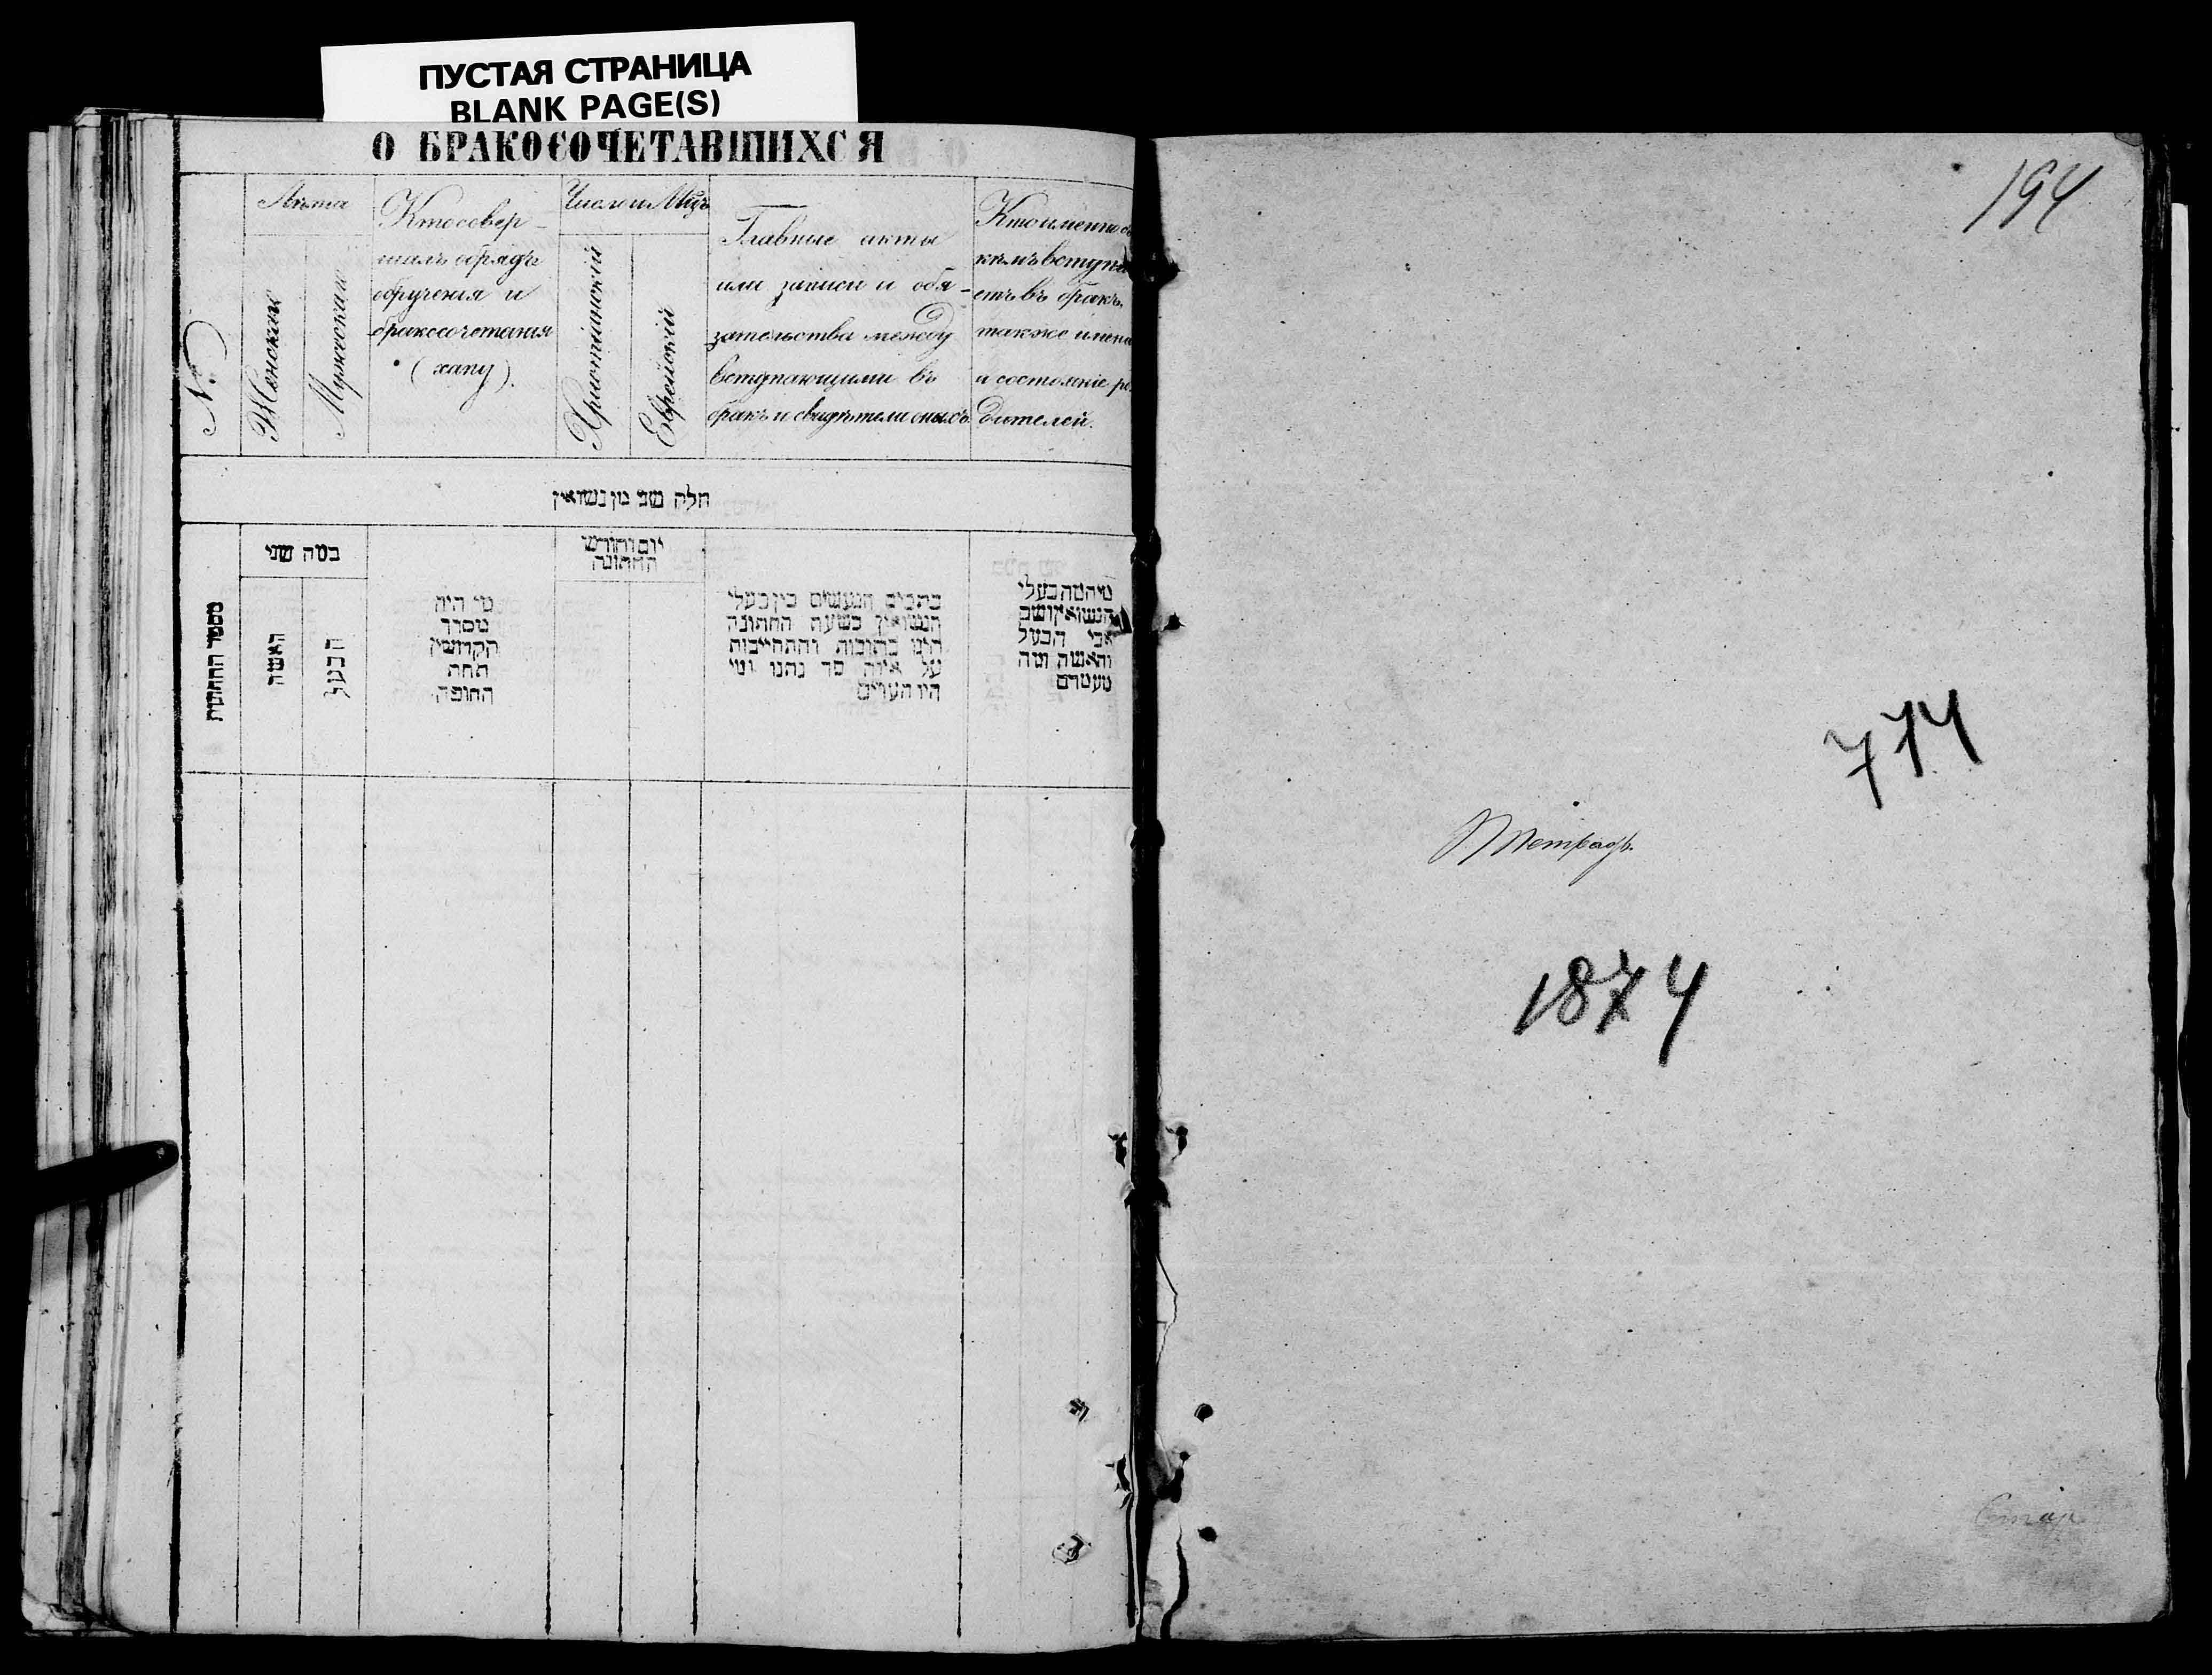 ПУСТАЯ СТРАНИЦА
BLANK PAGE(S)
О БРАКОСОЧЕТАВШИХСЯ
№
Лѣта
Женская
Мужеская
Кто совер-
шалъ обрядъ
обрученія и
бракосочетанія
(хапу).
Число и Мцъ
Христіанскій
Еврейскій
Главные акты
или записи и обя-
зательства между
вступающими въ
бракъ и свидѣтели оныхъ
Кто именно съ
кѣмъ вступа
етъ въ бракъ.
также имена
и состояніе ро
дителей.
חלק שני מן נשואין
מספר החתונות
כמה שני
האשה
הבעל
מי היה
מסדר
הקדושין
תחת
החופה
יום וחודש
החתונה
כתבים הנעשים בין בעלי
הנשואין בשעת החתונה
היינו כתובות והתחייבות
על איזה סך נתנו ומי
היו העדים
מי המה בעלי
הנשואין ושם
אבי הבעל
והאשה ומה
מעמדם
194
714
Тетрадь
1874